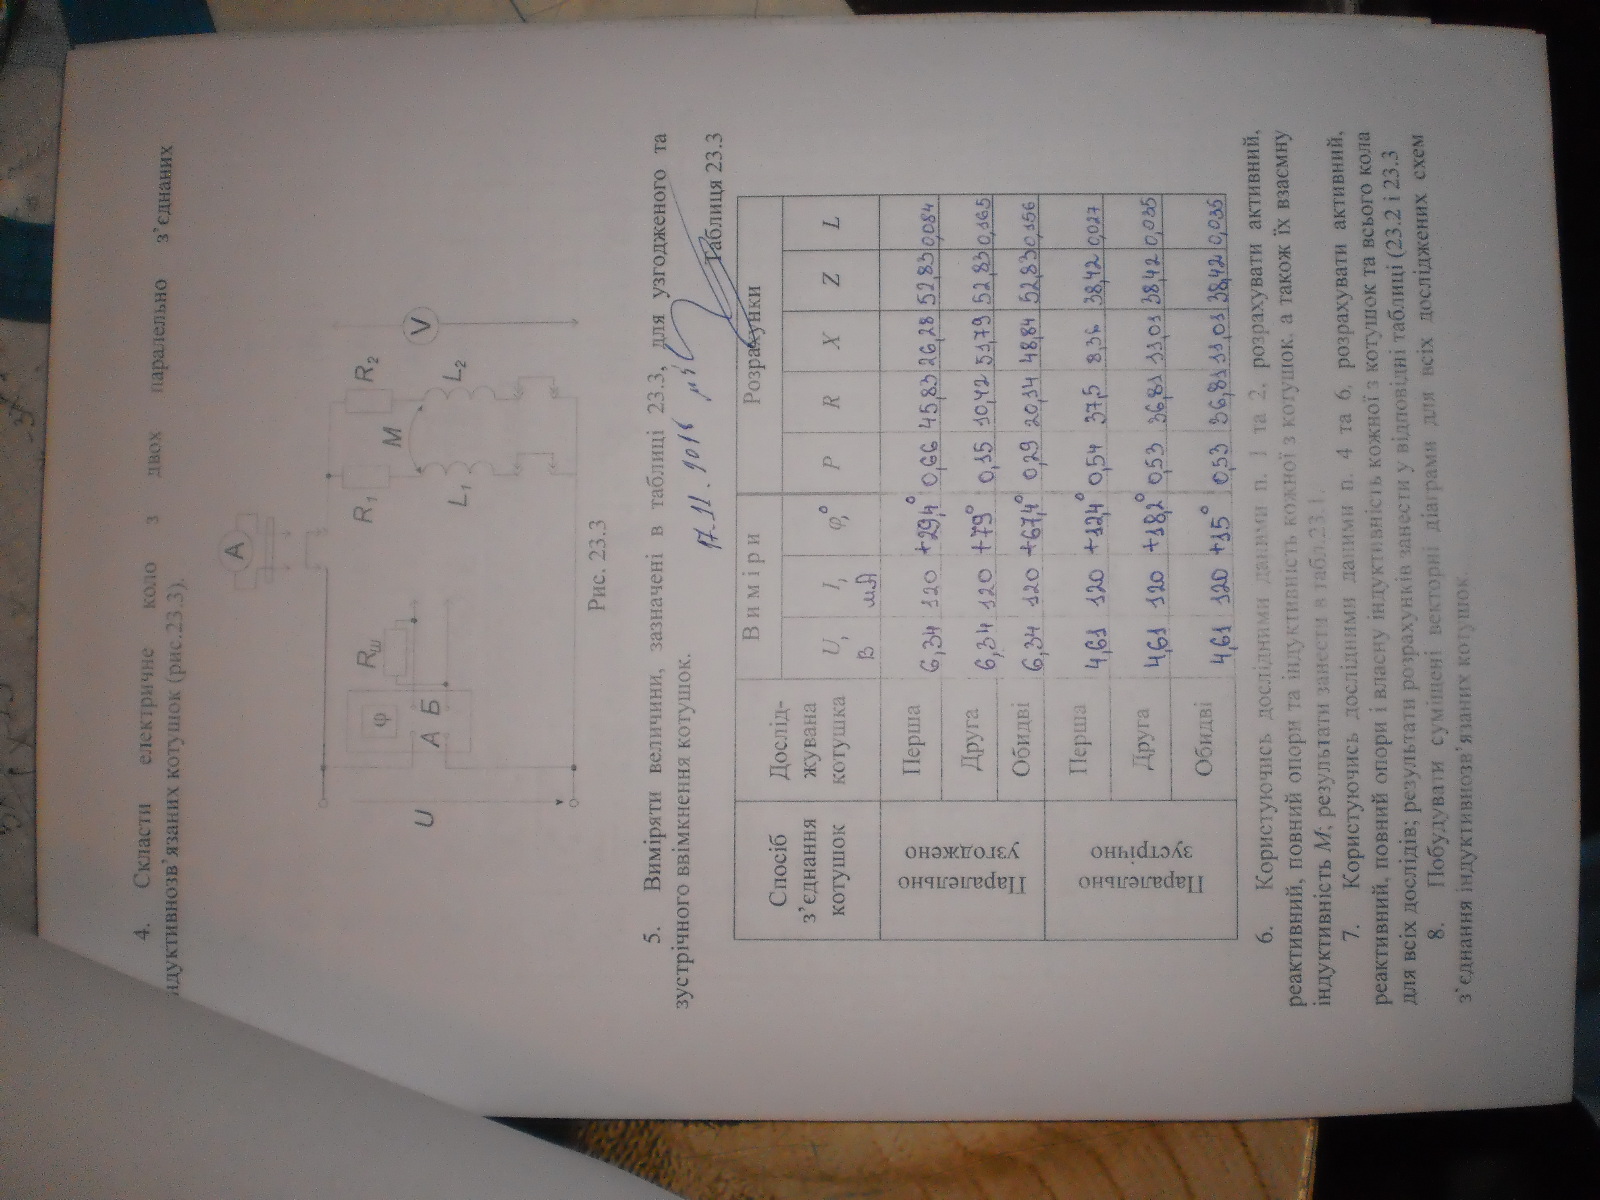 4. Скласти електричне коло з двох паралельно з’єднаних
індуктивнозв’язаних котушок (рис.23.3).
A
U
φ
А Б
Rш
R1
R2
M
L1
L2
V
Рис. 23.3
5. Виміряти величини, зазначені в таблиці 23.3, для узгодженого та
зустрічного ввімкнення котушок.
Таблиця 23.3
Спосіб з’єднання котушок | Дослід-жувана котушка | Виміри | Розрахунки
U, В | I, мА | φ,° | P | R | X | Z | L
Паралельно узгоджено
Перша 6,34 120 +29,4° 0,66 45,83 26,28 52,83 0,084
Друга 6,34 120 +79° 0,15 10,42 51,79 52,83 0,165
Обидві 6,34 120 +67,4° 0,29 20,14 48,84 52,83 0,156
Паралельно зустрічно
Перша 4,61 120 +12,4° 0,54 37,5 8,36 38,42 0,027
Друга 4,61 120 +18,2° 0,53 36,81 11,01 38,42 0,035
Обидві 4,61 120 +15° 0,53 36,81 11,01 38,42 0,035
6. Користуючись дослідними даними п. 1 та 2, розрахувати активний,
реактивний, повний опори та індуктивність кожної з котушок, а також їх взаємну
індуктивність M; результати занести в табл.23.1.
7. Користуючись дослідними даними п. 4 та 6, розрахувати активний,
реактивний, повний опори і власну індуктивність кожної з котушок та всього кола
для всіх дослідів; результати розрахунків занести у відповідні таблиці (23.2 і 23.3
8. Побудувати суміщені векторні діаграми для всіх досліджених схем
з’єднання індуктивнозв’язаних котушок.